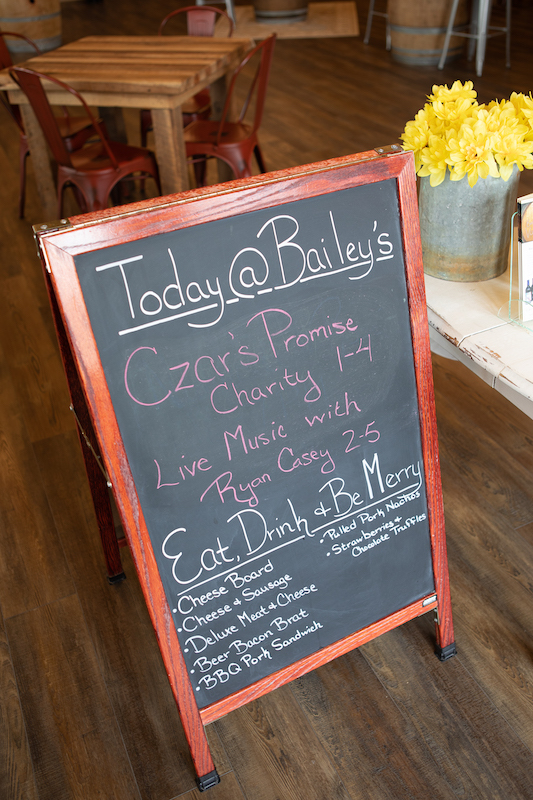 Today @ Bailey's
Czar's Promise
Charity 1-4
Live Music with
Ryan Casey 2-5
Eat, Drink & Be Merry
• Cheese Board
• Cheese & Sausage
• Deluxe Meat & Cheese
• Beer Bacon Brat
• BBQ Pork Sandwich
• Pulled Pork Nachos
• Strawberries &
Chocolate Truffles